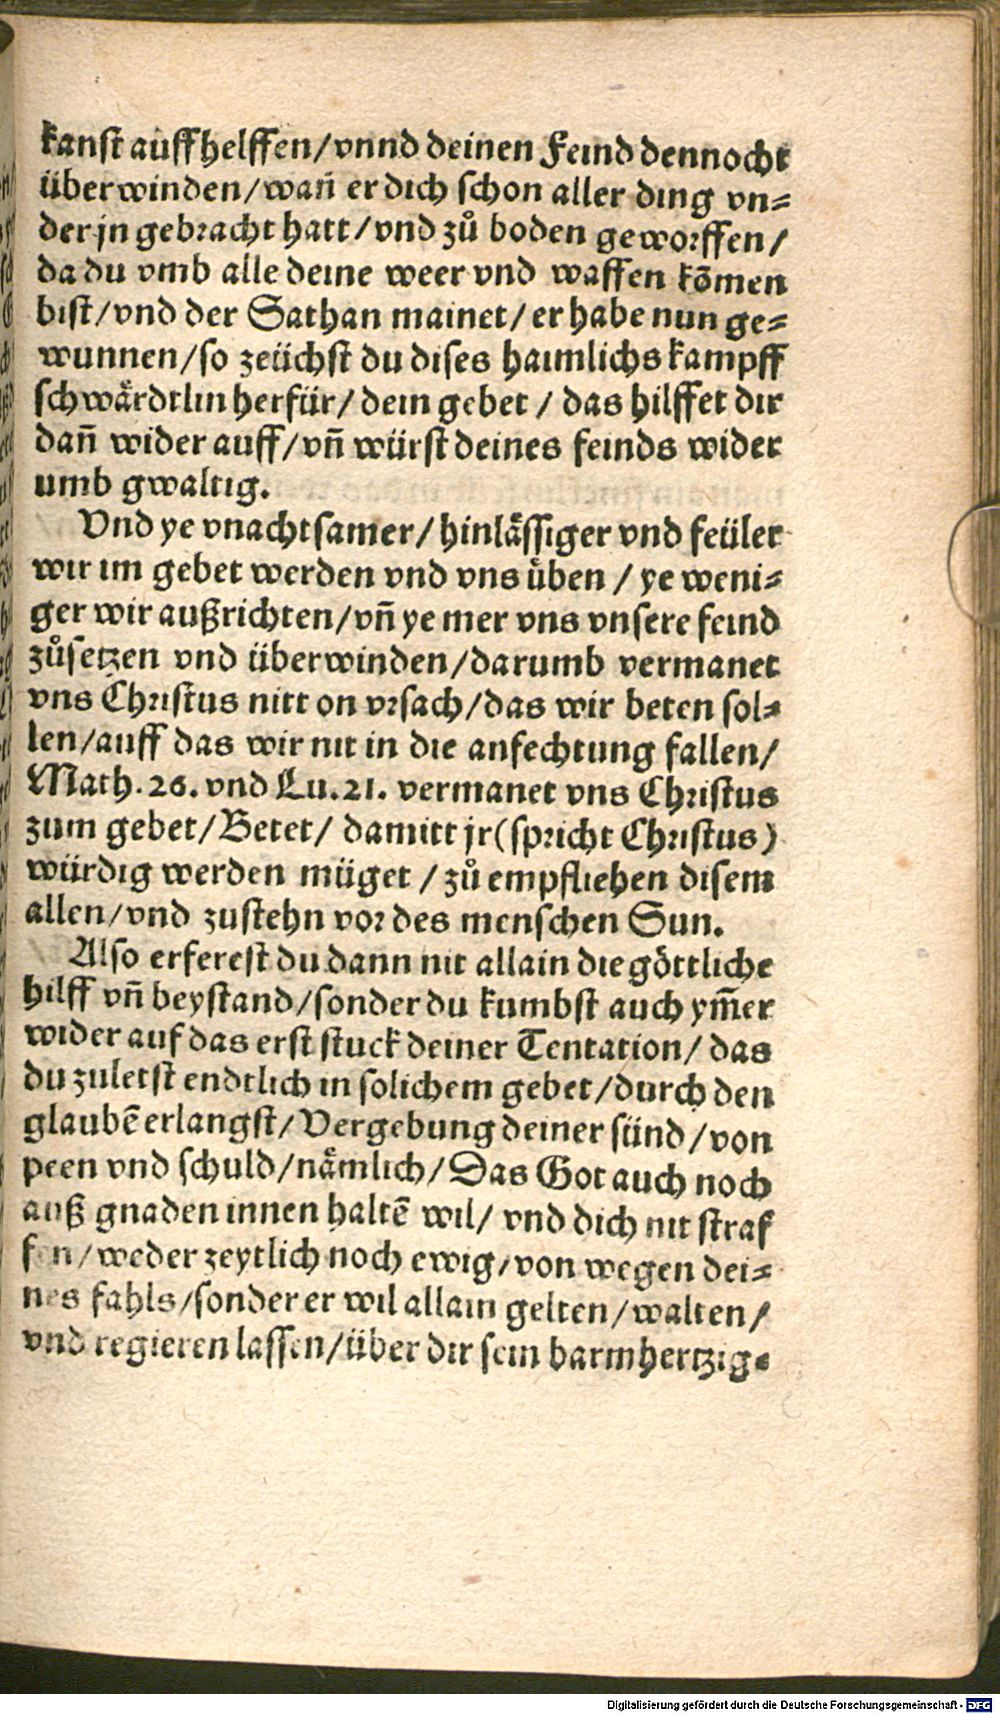 kanst auffhelffen/vnnd deinen Feind dennocht
überwinden/wañ er dich schon aller ding vn⸗
der jn gebracht hatt/vnd zů boden geworffen/
da du vmb alle deine weer vnd waffen kõmen
bist/vnd der Sathan mainet/er habe nun ge⸗
wunnen/so zeüchst du dises haimlichs kampff
schwårdtlin herfür/dein gebet/das hilffet dir
dañ wider auff/vñ würst deines feinds wider
umb gwaltig.
Vnd ye vnachtsamer/hinlåssiger vnd feüler
wir im gebet werden vnd vns üben/ye weni⸗
ger wir außrichten/vñ ye mer vns vnsere feind
zůsetzen vnd überwinden/darumb vermanet
vns Christus nitt on vrsach/das wir beten sol⸗
len/auff das wir nit in die anfechtung fallen/
Math. 26. vnd Lu. 21. vermanet vns Christus
zum gebet/Betet/damitt jr(spricht Christus)
würdig werden müget/zů empfliehen disem
allen/vnd zustehn vor des menschen Sun.
Also erferest du dann nit allain die göttliche
hilff vñ beystand/sonder du kumbst auch ym̃er
wider auf das erst stuck deiner Tentation/das
du zuletst endtlich in solichem gebet/durch den
glaubẽ erlangst/Vergebung deiner sünd/von
peen vnd schuld/nåmlich/Das Got auch noch
auß gnaden innen haltẽ wil/vnd dich nit straf
fen/weder zeytlich noch ewig/von wegen dei⸗
nes fahls/sonder er wil allain gelten/walten/
vnd regieren lassen/über dir sein barmhertzig⸗
Digitalisierung gefördert durch die Deutsche Forschungsgemeinschaft - DFG